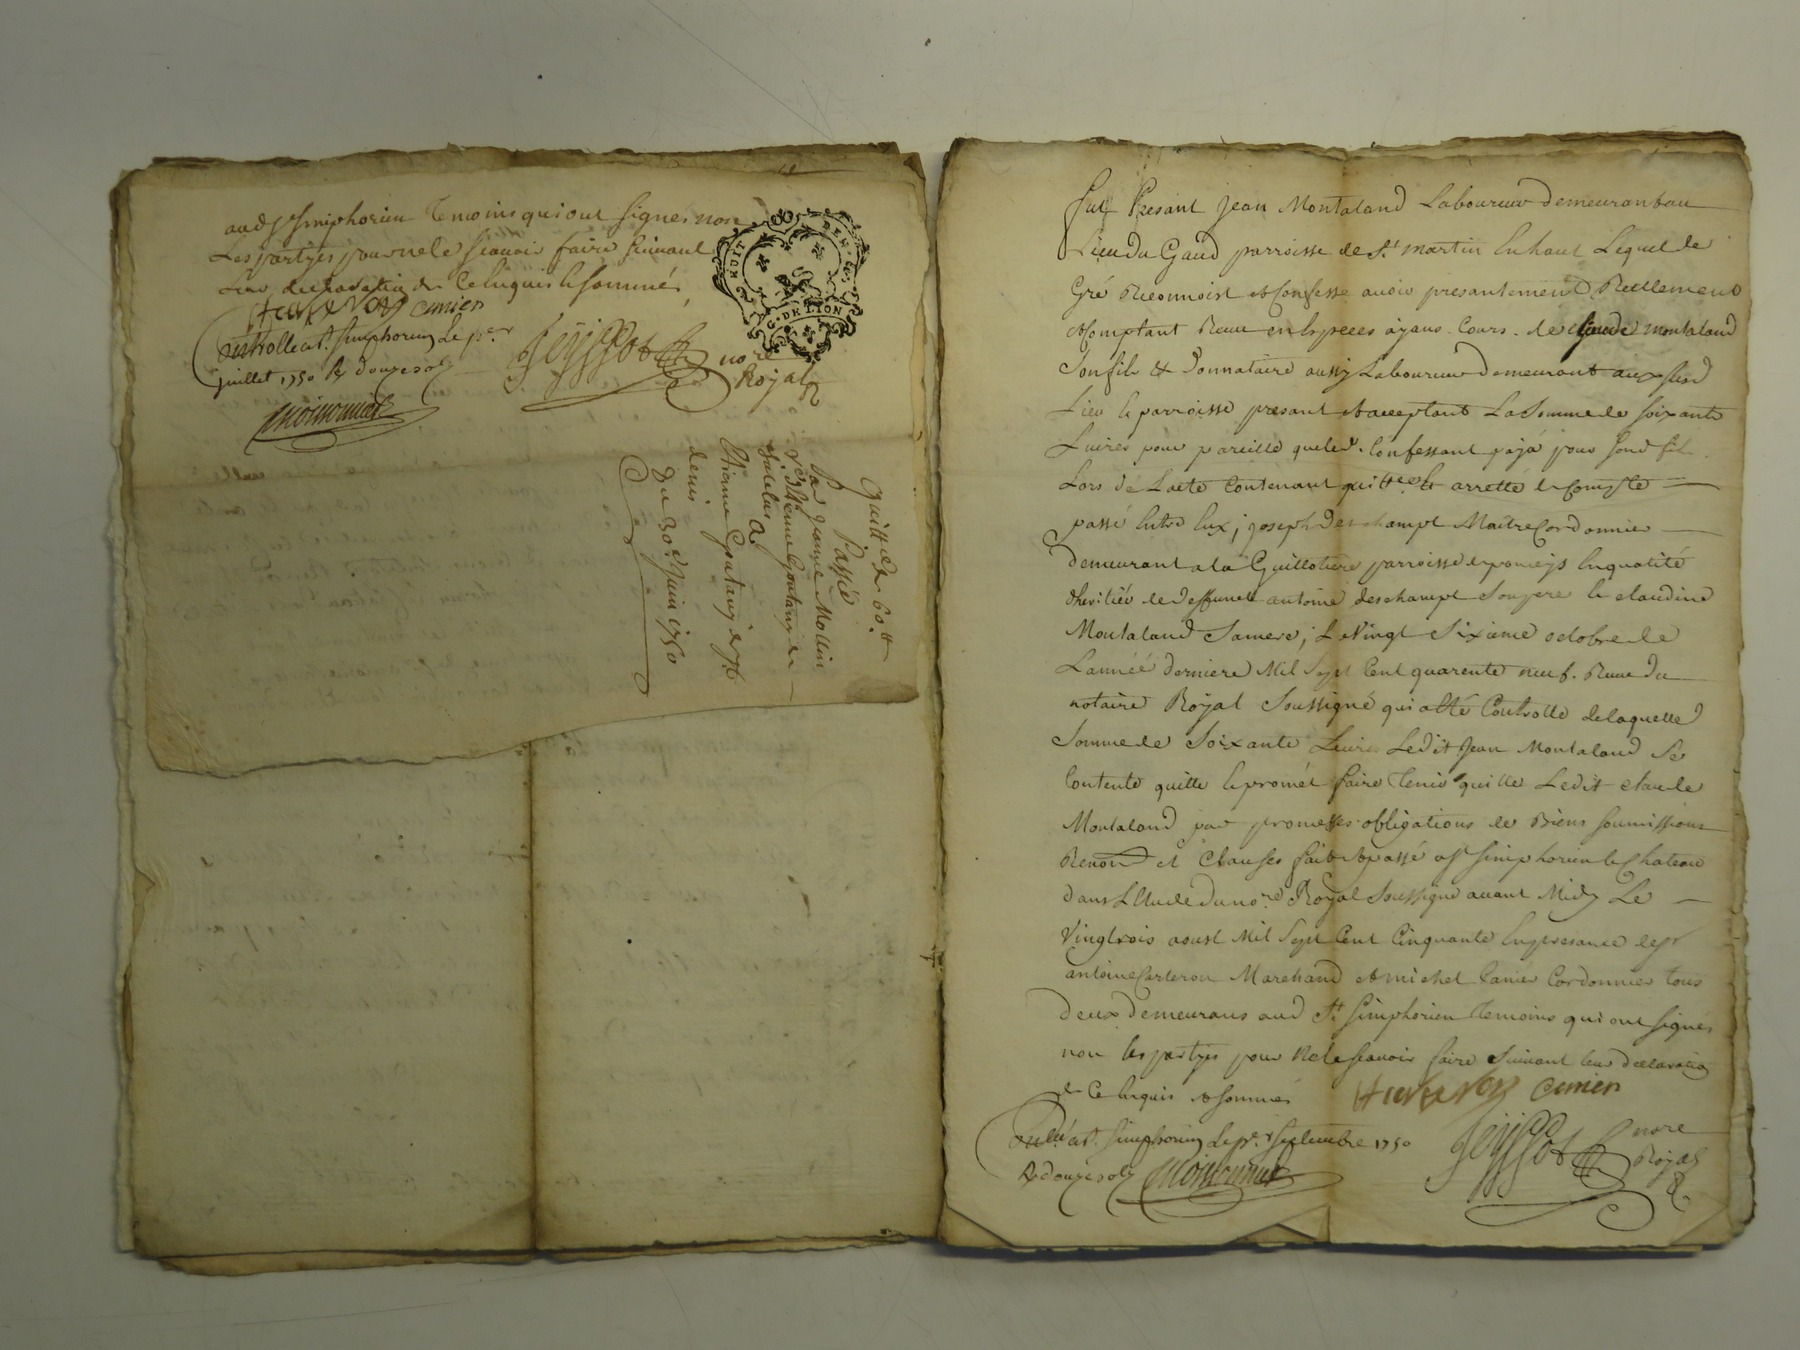 aud St Simphorien temoins qui ont signes non
Les partyes pour ne le scavoir faire suivant
Leur declaration de Ce Enquis & sommés
camier
Controlle a St. Simphorien Le per
juillet 1750 Rx douze sols
nore
Royal
G. DE LION
Quittce de 60.tt
Passé
Par jeanne Mollin
ve d'Etienne Goutany de
A
Etienne Goutany de St
denis
du 30.e juin 1750
fut Presant Jean Montaland Laboureur demeurant au
Lieu du Gaud parroisse de St. martin En haut Lequel de
Gré Reconnoist & Confesse avoir presantement Reellement
& Comptant Receu en Especes ayans Cours de Claude montaland
son fils & Donnataire aussy Laboureur demeurant aux susd
Lieu & parroisse presant & acceptant La Somme de soixante
Livres pour pareille que led. Confessant a jà pour sond fils
Lors de L'acte Contenant quittce & arretté de Compte
passé Entre Eux, joseph deschampt Maitre Cordonnier
demeurant a la Guillotiere parroisse de pomeys En qualité
d'heritier de deffunct antoine deschampt son pere & claudine
Montaland sa mere, Le Vingt sixieme octobre de
L'année derniere Mil Sept Cent quarente neuf. Receu du
notaire Royal Soussigné qui a Eté Controllé de laquelle
Somme de Soixante Livres Ledit Jean Montaland se
Contente quitte & promet faire tenir quitte Ledit claude
Montaland par promesses obligations de Biens soumissions
Renon et Clauses fait & passé a St simphorien le Chateau
dans L'Etude du nore. Royal Soussigné avant Midy Le
Vingtrois aoust Mil Sept Cent Cinquante En presance de Sr
antoine Carteron Marchand & michel Camier Cordonnier tous
deux demeurans aud St. simphorien temoins qui ont signés
non les partyes pour ne le scavoir faire suivant leur declaration
de Ce Enquis & sommés camier
Contlé a St. Simphorien Le per septembre 1750
Rx douze sols
nore
Royal